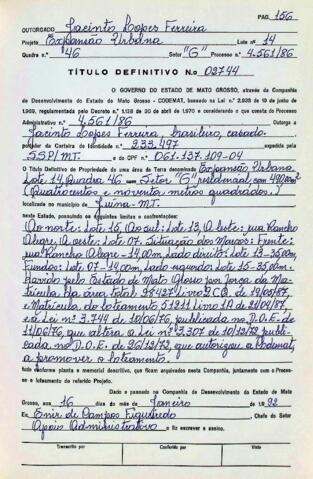 PAG. 156
OUTORGADO Jacinto Lopes Ferreira
Projeto Expansão Urbana Lote n.º 14
Quadra n.º 46 Setor "G" Processo n.º 4.561/86
TÍTULO DEFINITIVO No. 02744
O GOVERNO DO ESTADO DE MATO GROSSO, através da Companhia
de Desenvolvimento do Estado de Mato Grosso - CODEMAT, baseado na Lei n.º 2.935 de 19 de junho de
1969, regulamentado pelo Decreto n.º 1.138 de 30 de abril de 1970 e considerando o que consta do Processo
Administrativo n.º 4.561/86 outorga a
Jacinto Lopes Ferreira, brasileiro, casado.
portador da Carteira de Identidade n.º 233.497 expedida pela
SSP/MT. e do CPF n.º 061.137.109-04
O Título Definitivo de Propriedade de uma área de Terra denominada Expansão Urbana
Lote 14 Quadra 46 — Setor "G" residencial, com 490,00m²
(Quatrocentos e noventa metros quadrados.)
localizada no município de Juína-MT.
neste Estado, possuindo os seguintes limites e confrontações:
Ao norte: Lote 15, Ao sul: Lote 13, A leste: rua Rancho
Alegre, A oeste: Lote 07. Situação dos Marcos: Frente:
rua Rancho Alegre - 14,00m, Lado direito: Lote 13 - 35,00m.
Fundos: Lote 07 - 14,00m, Lado esquerdo: Lote 15 - 35,00m.
Havido pelo Estado de Mato Grosso por força da Ma-
trícula da área total 38427 livro 2CA. de 14/09/87,
e Matrícula do loteamento 51211 livro 1A de 21/09/87,
e a Lei n.º 3.744 de 10/06/76, publicada no D.O.E. de
11/06/76, que altera a Lei n.º 3.307 de 10/12/72 publi-
cada no D.O.E. de 26/12/72, que autorizou a Codemat,
a promover o loteamento.
tudo conforme planta e memorial descritivo, que ficam arquivados nesta Companhia, juntamente com o Processo
e o loteamento do referido Projeto.
Dado e passado na Companhia de Desenvolvimento do Estado de Mato
Grosso, aos 16 dias do mês de Janeiro de 1.992
Eu, Enir de Campos Figueiredo Chefe do Setor
Apoio Administrativo o fiz escrever e assino.
Transcrito por Conferido por Visto